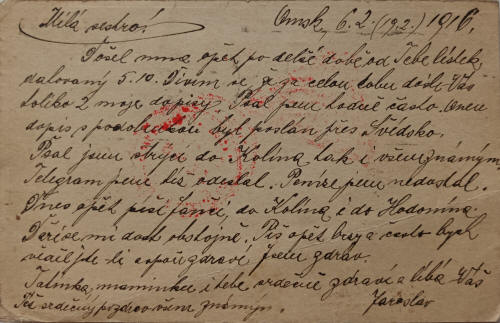 Milá sestro! Omsk, 6.2. (19.2.) 1916.
Došel mne opět po delší době od Tebe lístek,
datovaný 5.10. Divím se, že za celou dobu došly Vás
toliko 2 moje dopisy. Psal jsem hodně často. Onen
dopis s podobenkou byl poslán přes Švédsko.
Psal jsem strýci do Kolína, tak i všem známým.
Telegram jsem též odeslal. Peníze jsem nedostal.
Dnes opět píši Jance, do Kolína i do Hodonína.
Daří se mi dost obstojně. Piš opět brzy a často bych
věděl jste-li aspoň zdrávi. Jsem zdráv.
Tatínka, maminku i tebe srdečně zdraví a líbá Váš
Též srdečný pozdrav všem známým. Jaroslav